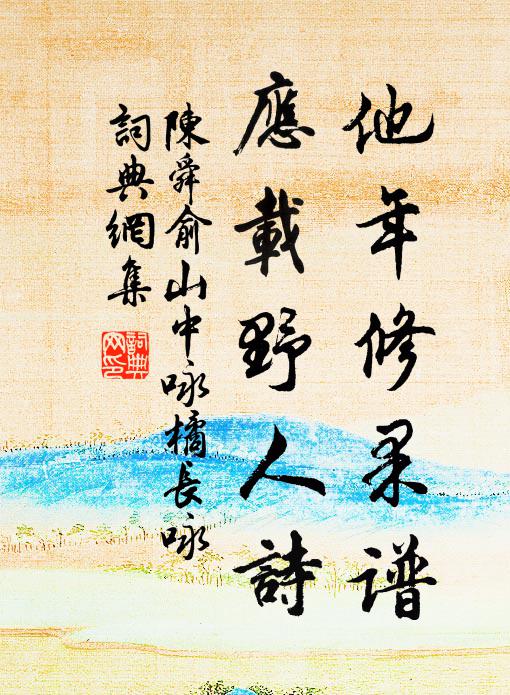 他年修果谱
應載野人詩
陳舜俞山中咏橘長咏
詞典網集
詞典
网印